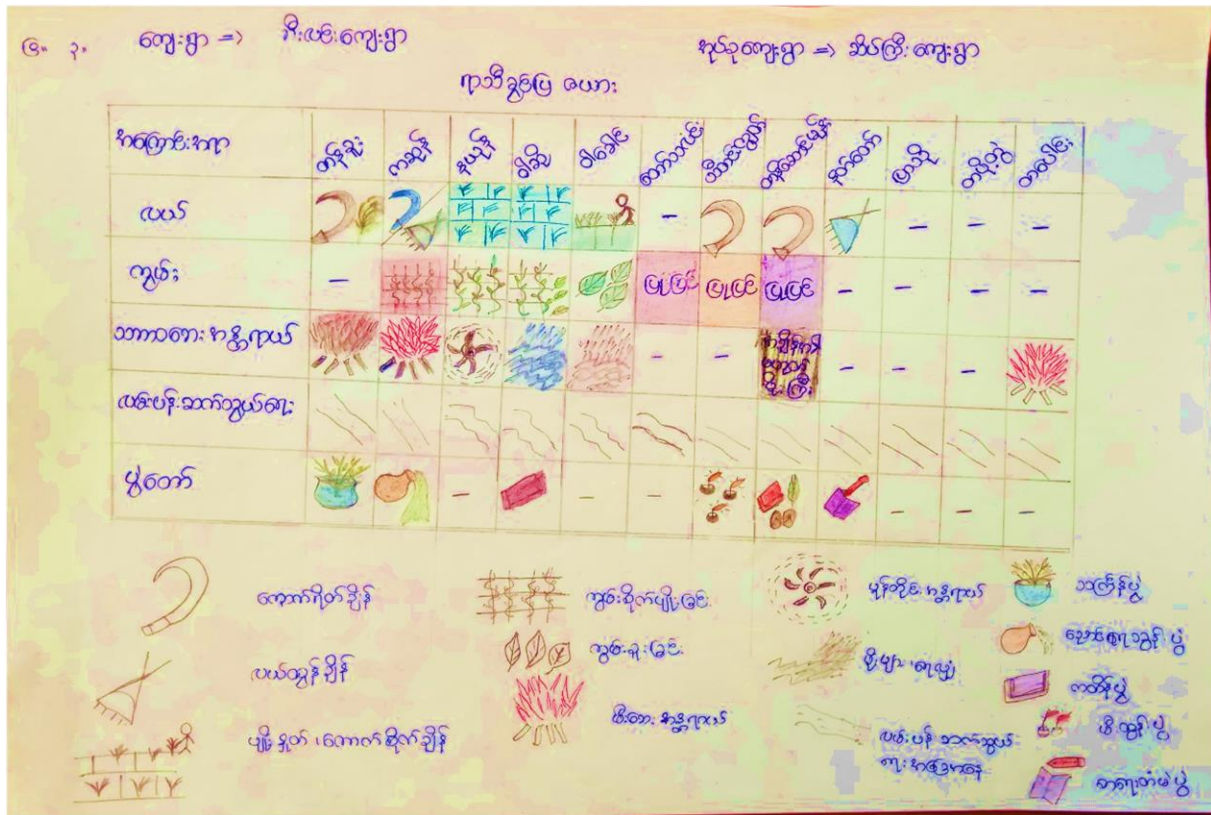 ၆။ ၃။ ကျေးရွာ => အီးလင်းကျေးရွာ အုပ်စုကျေးရွာ => ဆိပ်ကြီးကျေးရွာ
ရာသီခွင်ပြ ဇယား
အကြောင်းအရာ တန်ခူး ကဆုန် နယုန် ဝါဆို ဝါခေါင် တော်သလင်း သီတင်းကျွတ် တန်ဆောင်မုန်း နတ်တော် ပြာသို တပို့တွဲ တပေါင်း
လယ် - - - -
ကွမ်း - ပြုပြင် ပြုပြင် ပြုပြင် - - - -
သဘာဝဘေး အန္တရာယ် - - - - -
လမ်းပန်းဆက်သွယ်ရေး
ပွဲတော် - - - - - -
ကောက်ရိတ်ချိန်
လယ်ထွန်ချိန်
ပျိုးနှုတ် ၊ ကောက်စိုက်ချိန်
ကွမ်းစိုက်ပျိုးခြင်း
ကွမ်းခူးခြင်း
မီးဘေး အန္တရာယ်
မုန်တိုင်း အန္တရာယ်
မိုးများ ၊ ရေလျှံ
လမ်းပန်း ဆက်သွယ်
ရေး အခြေအနေ
သင်္ကြန်ပွဲ
ညောင်ရေသွန်း ပွဲ
ကထိန်ပွဲ
မီးထွန်း ပွဲ
စာရေးတံမဲပွဲ